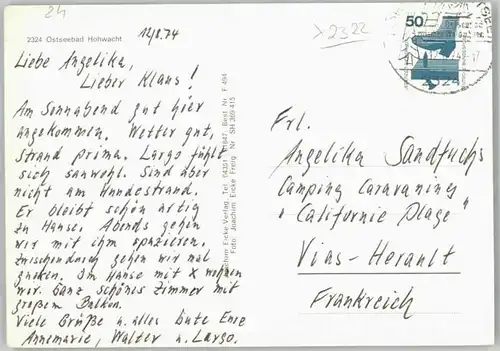 24
2324 Ostseebad Hohwacht
12/8.74
>2322
50
2324
Liebe Angelika,
Lieber Klaus!
Am Sonnabend gut hier
angekommen. Wetter gut,
Strand prima. Largo fühlt
sich sauwohl. Sind aber
nicht am Hundestrand.
Er bleibt schön artig
zu Hause. Abends gehen
wir mit ihm spazieren.
Zwischendurch gehen wir mal
gucken. Im Hause mit X wohnen
wir. Ganz schönes Zimmer mit
großem Balkon.
Viele Grüße u. alles Gute Eure
Annemarie, Walter u. Largo.
Joachim Eicke-Verlag, Tel. Best Nr F 494
Foto: Joachim Eicke Freig. Nr. SH 369/415
Frl.
Angelika Sandfuchs
Camping Caravaning
"Californie Plage"
Vias-Herault
Frankreich